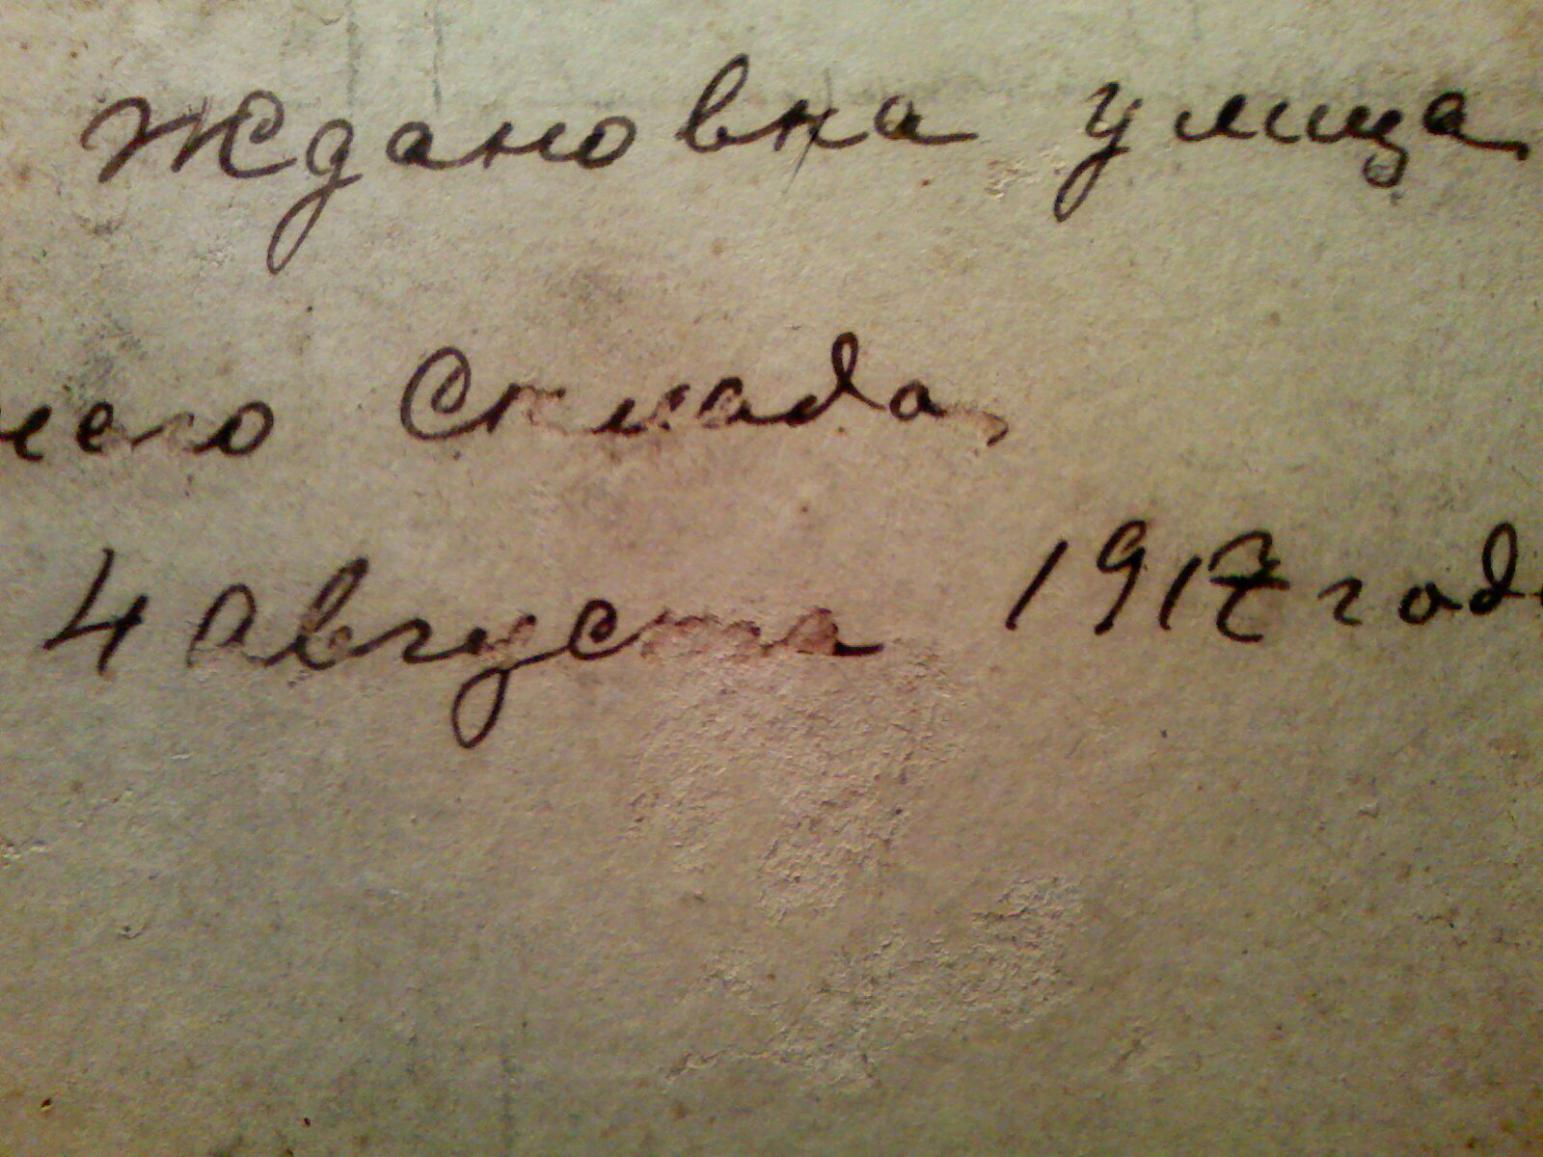 Ждановка улица
его Склада,
4 Августа 1917 года